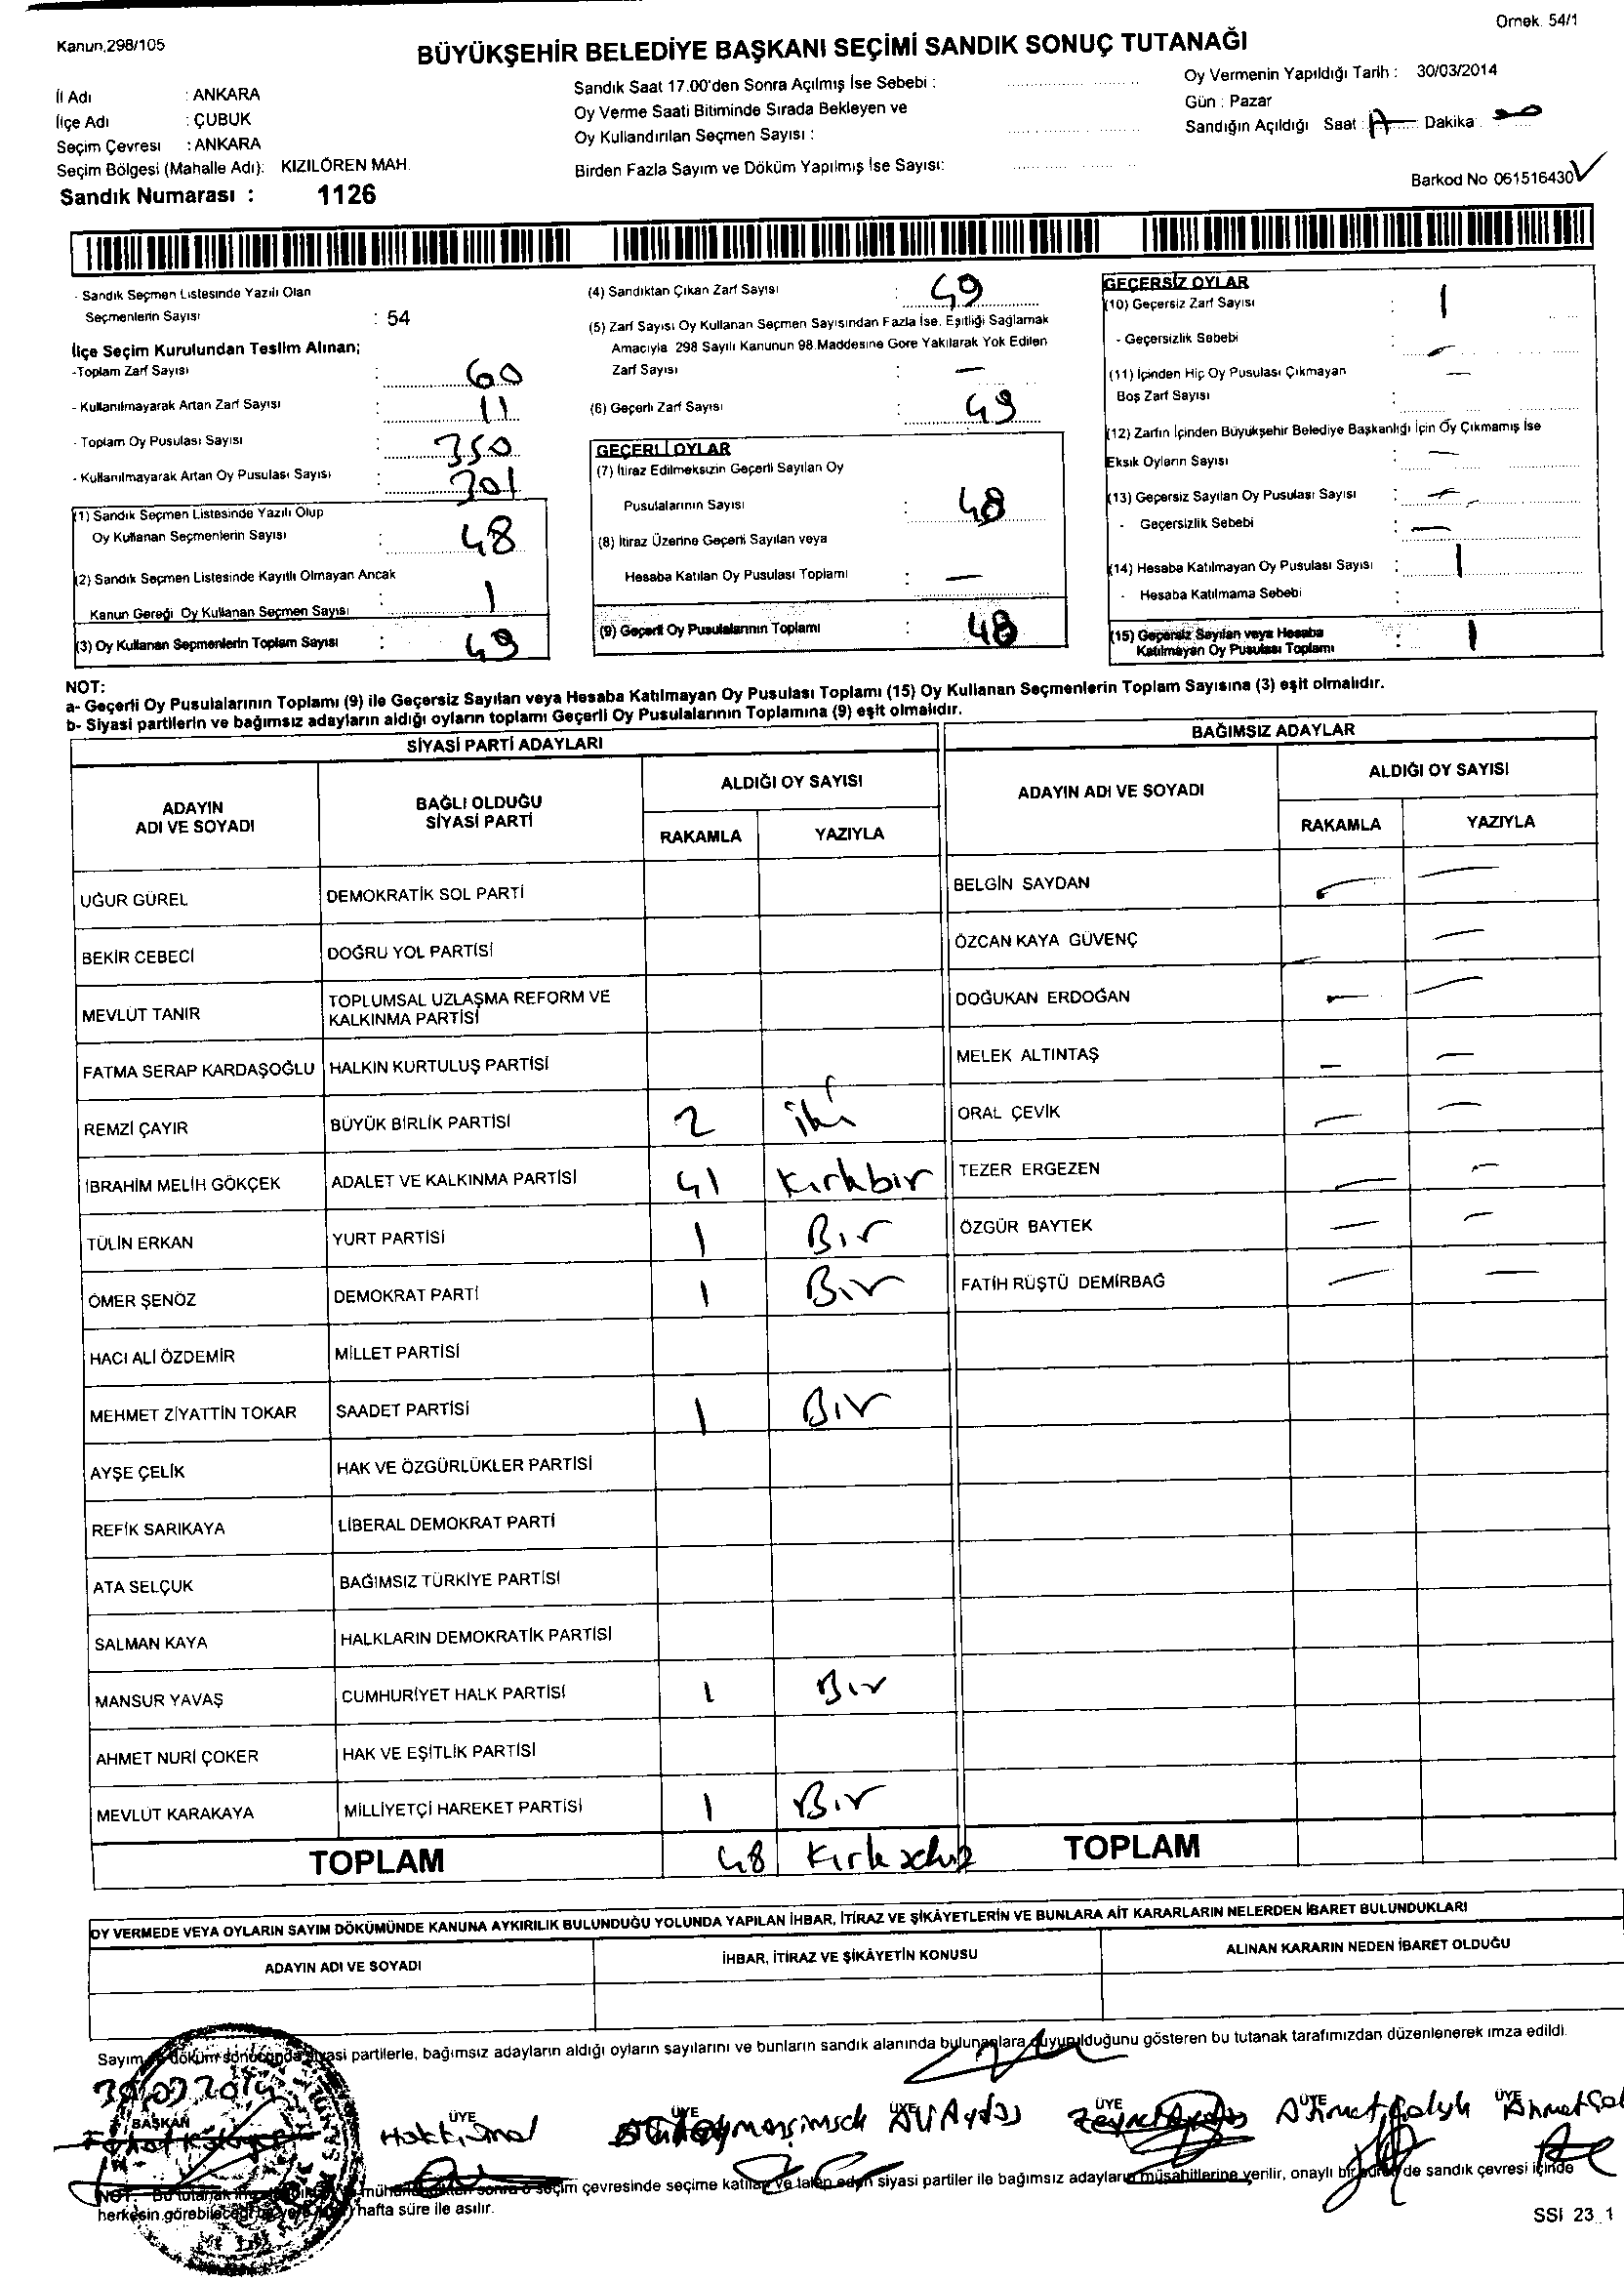 Kanun,298/105
Örnek. 54/1
BÜYÜKŞEHİR BELEDİYE BAŞKANI SEÇİMİ SANDIK SONUÇ TUTANAĞI
İl Adı : ANKARA
İlçe Adı : ÇUBUK
Seçim Çevresi : ANKARA
Seçim Bölgesi (Mahalle Adı): KIZILÖREN MAH.
Sandık Numarası : 1126
Sandık Saat 17.00'den Sonra Açılmış İse Sebebi :
Oy Verme Saati Bitiminde Sırada Bekleyen ve
Oy Kullandırılan Seçmen Sayısı :
Birden Fazla Sayım ve Döküm Yapılmış İse Sayısı:
Oy Vermenin Yapıldığı Tarih : 30/03/2014
Gün : Pazar
Sandığın Açıldığı Saat : Dakika :
Barkod No 061516430
- Sandık Seçmen Listesinde Yazılı Olan
Seçmenlerin Sayısı : 54
İlçe Seçim Kurulundan Teslim Alınan;
-Toplam Zarf Sayısı : 60
- Kullanılmayarak Artan Zarf Sayısı : 11
- Toplam Oy Pusulası Sayısı : 350
- Kullanılmayarak Artan Oy Pusulası Sayısı : 301
(1) Sandık Seçmen Listesinde Yazılı Olup
Oy Kullanan Seçmenlerin Sayısı : 48
(2) Sandık Seçmen Listesinde Kayıtlı Olmayan Ancak
Kanun Gereği Oy Kullanan Seçmen Sayısı : 1
(3) Oy Kullanan Seçmenlerin Toplam Sayısı : 49
(4) Sandıktan Çıkan Zarf Sayısı : 49
(5) Zarf Sayısı Oy Kullanan Seçmen Sayısından Fazla İse, Eşitliği Sağlamak
Amacıyla 298 Sayılı Kanunun 98.Maddesine Göre Yakılarak Yok Edilen
Zarf Sayısı : —
(6) Geçerli Zarf Sayısı : 49
GEÇERLİ OYLAR
(7) İtiraz Edilmeksizin Geçerli Sayılan Oy
Pusulalarının Sayısı : 48
(8) İtiraz Üzerine Geçerli Sayılan veya
Hesaba Katılan Oy Pusulası Toplamı : —
(9) Geçerli Oy Pusulalarının Toplamı : 48
GEÇERSİZ OYLAR
(10) Geçersiz Zarf Sayısı : 1
- Geçersizlik Sebebi : —
(11) İçinden Hiç Oy Pusulası Çıkmayan —
Boş Zarf Sayısı :
(12) Zarfın İçinden Büyükşehir Belediye Başkanlığı İçin Oy Çıkmamış İse
Eksik Oyların Sayısı : —
(13) Geçersiz Sayılan Oy Pusulası Sayısı : —
- Geçersizlik Sebebi : —
(14) Hesaba Katılmayan Oy Pusulası Sayısı : 1
- Hesaba Katılmama Sebebi :
(15) Geçersiz Sayılan veya Hesaba
Katılmayan Oy Pusulası Toplamı : 1
NOT:
a- Geçerli Oy Pusulalarının Toplamı (9) ile Geçersiz Sayılan veya Hesaba Katılmayan Oy Pusulası Toplamı (15) Oy Kullanan Seçmenlerin Toplam Sayısına (3) eşit olmalıdır.
b- Siyasi partilerin ve bağımsız adayların aldığı oyların toplamı Geçerli Oy Pusulalarının Toplamına (9) eşit olmalıdır.
SİYASİ PARTİ ADAYLARI
ADAYIN
ADI VE SOYADI
BAĞLI OLDUĞU
SİYASİ PARTİ
ALDIĞI OY SAYISI
RAKAMLA YAZIYLA
UĞUR GÜREL DEMOKRATİK SOL PARTİ
BEKİR CEBECİ DOĞRU YOL PARTİSİ
MEVLÜT TANIR TOPLUMSAL UZLAŞMA REFORM VE
KALKINMA PARTİSİ
FATMA SERAP KARDAŞOĞLU HALKIN KURTULUŞ PARTİSİ
REMZİ ÇAYIR BÜYÜK BİRLİK PARTİSİ 2 iki
İBRAHİM MELİH GÖKÇEK ADALET VE KALKINMA PARTİSİ 41 Kırkbir
TÜLİN ERKAN YURT PARTİSİ 1 Bir
ÖMER ŞENÖZ DEMOKRAT PARTİ 1 Bir
HACI ALİ ÖZDEMİR MİLLET PARTİSİ
MEHMET ZİYATTİN TOKAR SAADET PARTİSİ 1 Bir
AYŞE ÇELİK HAK VE ÖZGÜRLÜKLER PARTİSİ
REFİK SARIKAYA LİBERAL DEMOKRAT PARTİ
ATA SELÇUK BAĞIMSIZ TÜRKİYE PARTİSİ
SALMAN KAYA HALKLARIN DEMOKRATİK PARTİSİ
MANSUR YAVAŞ CUMHURİYET HALK PARTİSİ 1 Bir
AHMET NURİ ÇOKER HAK VE EŞİTLİK PARTİSİ
MEVLÜT KARAKAYA MİLLİYETÇİ HAREKET PARTİSİ 1 Bir
TOPLAM 48 Kırk sekiz
BAĞIMSIZ ADAYLAR
ADAYIN ADI VE SOYADI
ALDIĞI OY SAYISI
RAKAMLA YAZIYLA
BELGİN SAYDAN — —
ÖZCAN KAYA GÜVENÇ — —
DOĞUKAN ERDOĞAN — —
MELEK ALTINTAŞ — —
ORAL ÇEVİK — —
TEZER ERGEZEN — —
ÖZGÜR BAYTEK — —
FATİH RÜŞTÜ DEMİRBAĞ — —
TOPLAM
OY VERMEDE VEYA OYLARIN SAYIM DÖKÜMÜNDE KANUNA AYKIRILIK BULUNDUĞU YOLUNDA YAPILAN İHBAR, İTİRAZ VE ŞİKÂYETLERİN VE BUNLARA AİT KARARLARIN NELERDEN İBARET BULUNDUKLARI
ADAYIN ADI VE SOYADI İHBAR, İTİRAZ VE ŞİKÂYETİN KONUSU ALINAN KARARIN NEDEN İBARET OLDUĞU
Sayım döküm sonucunda siyasi partilerle, bağımsız adayların aldığı oyların sayılarını ve bunların sandık alanında bulunanlara duyurulduğunu gösteren bu tutanak tarafımızdan düzenlenerek imza edildi.
30.03.2014
BAŞKAN ÜYE ÜYE ÜYE ÜYE ÜYE ÜYE
Ali Aydaş Zeynel Aydaş
NOT: Bu tutanak sonra o seçim çevresinde seçime katılan ve talep eden siyasi partiler ile bağımsız adayların müşahitlerine verilir, onaylı bir de sandık çevresi içinde
herkesin görebileceği hafta süre ile asılır.
SSI 23_1